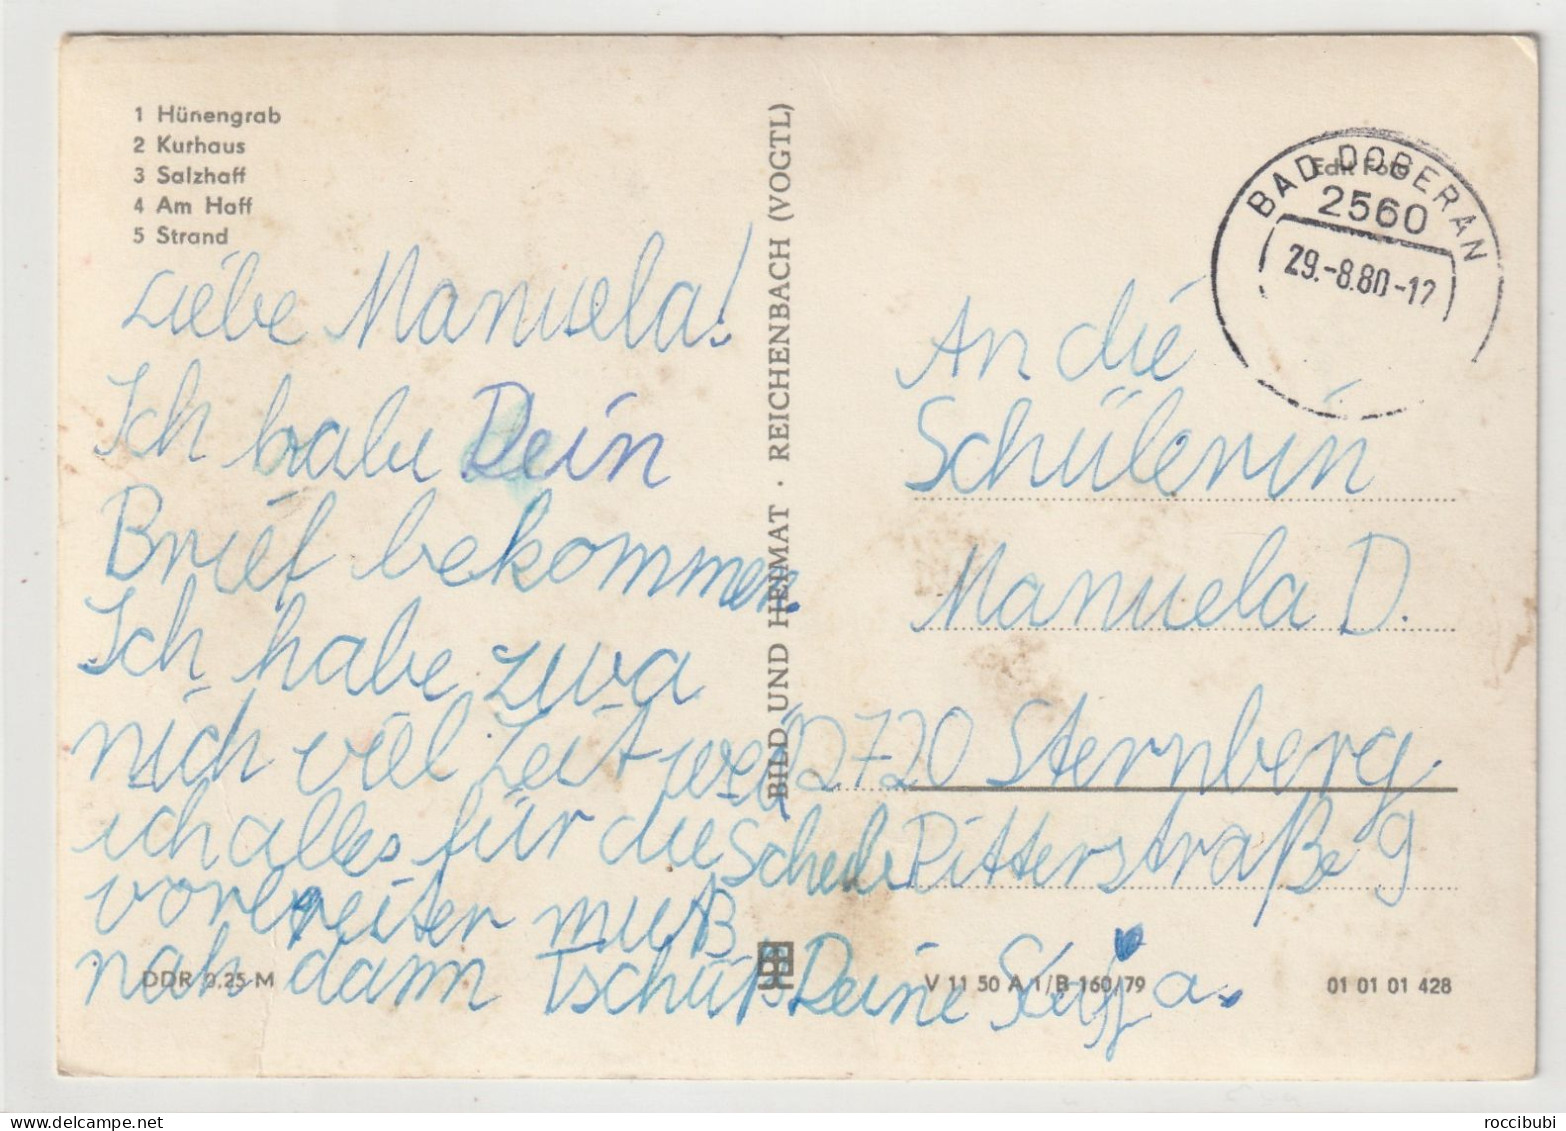 1 Hünengrab
2 Kurhaus
3 Salzhaff
4 Am Haff
5 Strand
Liebe Manuela!
Ich habe Dein
Brief bekommen.
Ich habe zwa
nich viel Zeit weil
ich alles für die Schule
vorbereiten muß
nah dann Tschüß Deine
BILD UND HEIMAT · REICHENBACH (VOGTL)
Edit Foto
BAD DOBERAN
2560
29.-8.80-12
An die
Schülerin
Manuela D.
2720 Sternberg.
Pitterstraße 9
DDR 0,25 M
V 11 50 A 1/B 160/79
01 01 01 428
roccibubi